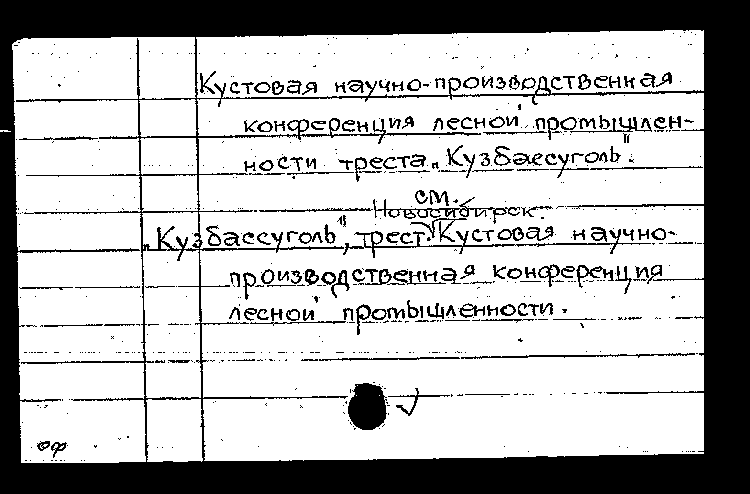 Кустовая научно-производственная
конференция лесной промышлен-
ности треста „Кузбассуголь".
см.
Новосибирск.
„Кузбассуголь", трест. Кустовая научно-
производственная конференция
лесной промышленности.
оф